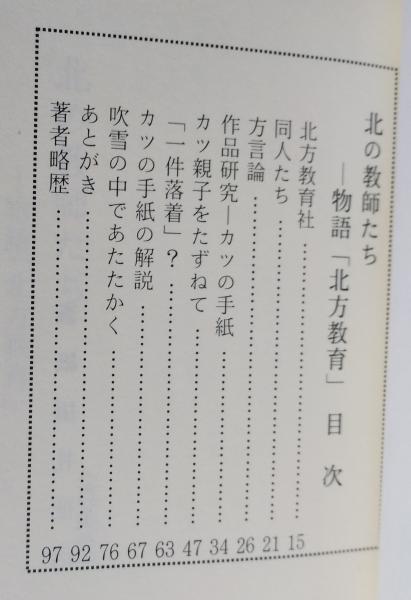 北の教師たち
―物語「北方教育」 目 次
北方教育社……………………15
同人たち……………………21
方言論……………………26
作品研究―カツの手紙……………………34
カツ親子をたずねて……………………47
「一件落着」?……………………63
カツの手紙の解説……………………67
吹雪の中であたたかく……………………76
あとがき……………………92
著者略歴……………………97